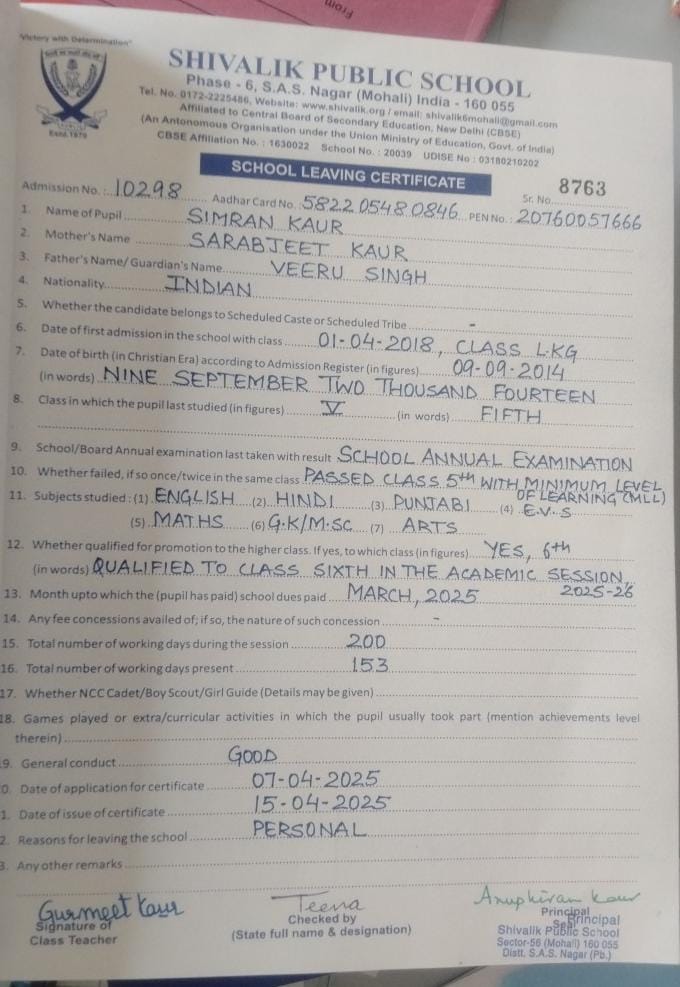 From
"Victory with Determination"
Estd. 1970
SHIVALIK PUBLIC SCHOOL
Phase - 6, S.A.S. Nagar (Mohali) India - 160 055
Tel. No. 0172-2225486, Website: www.shivalik.org / email: shivalik6mohali@gmail.com
Affiliated to Central Board of Secondary Education, New Delhi (CBSE)
(An Antonomous Organisation under the Union Ministry of Education, Govt. of India)
CBSE Affiliation No. : 1630022 School No. : 20039 UDISE No : 03180210202
SCHOOL LEAVING CERTIFICATE
Sr. No. 8763
Admission No.: 10298 Aadhar Card No. 5822 0548 0846 PEN No.: 20760057666
1. Name of Pupil SIMRAN KAUR
2. Mother's Name SARABJEET KAUR
3. Father's Name/ Guardian's Name VEERU SINGH
4. Nationality INDIAN
5. Whether the candidate belongs to Scheduled Caste or Scheduled Tribe -
6. Date of first admission in the school with class 01-04-2018, CLASS L.KG
7. Date of birth (in Christian Era) according to Admission Register (in figures) 09-09-2014
(in words) NINE SEPTEMBER TWO THOUSAND FOURTEEN
8. Class in which the pupil last studied (in figures) V (in words) FIFTH
9. School/Board Annual examination last taken with result SCHOOL ANNUAL EXAMINATION
10. Whether failed, if so once/twice in the same class PASSED CLASS 5th WITH MINIMUM LEVEL
OF LEARNING (MLL)
11. Subjects studied : (1) ENGLISH (2) HINDI (3) PUNJABI (4) E.V.S
(5) MATHS (6) G.K/M.SC (7) ARTS
12. Whether qualified for promotion to the higher class. If yes, to which class (in figures) YES, 6th
(in words) QUALIFIED TO CLASS SIXTH IN THE ACADEMIC SESSION,
2025-26
13. Month upto which the (pupil has paid) school dues paid MARCH, 2025
14. Any fee concessions availed of; if so, the nature of such concession -
15. Total number of working days during the session 200
16. Total number of working days present 153
17. Whether NCC Cadet/Boy Scout/Girl Guide (Details may be given)
18. Games played or extra/curricular activities in which the pupil usually took part (mention achievements level
therein)
9. General conduct GOOD
0. Date of application for certificate 07-04-2025
1. Date of issue of certificate 15-04-2025
2. Reasons for leaving the school PERSONAL
3. Any other remarks
Gurmeet Kaur
Signature of
Class Teacher
Teena
Checked by
(State full name & designation)
Anupkiran Kaur
Principal
Seal
Principal
Shivalik Public School
Sector-56 (Mohali) 160 055
Distt. S.A.S. Nagar (Pb.)